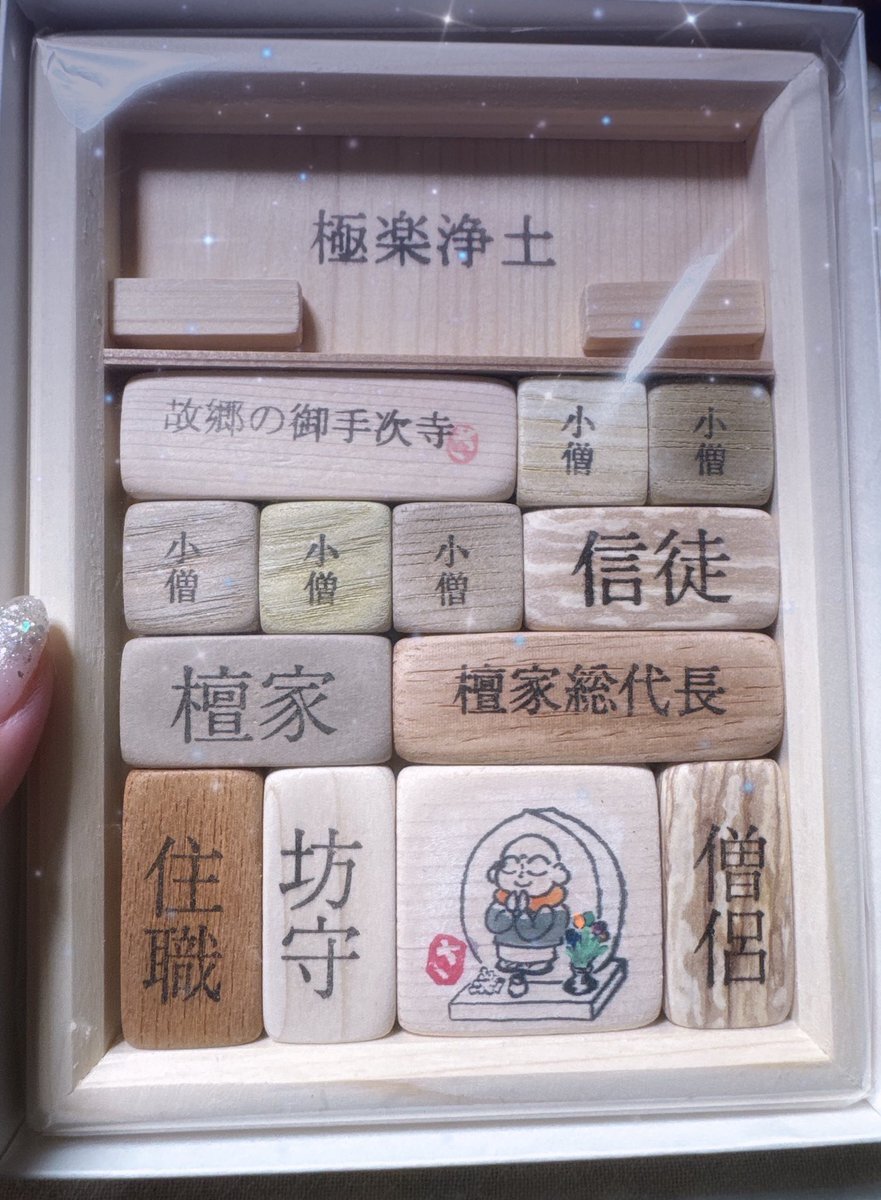 極楽浄土
故郷の御手次寺
小僧
小僧
小僧
小僧
小僧
信徒
檀家
檀家総代長
住職
坊守
僧侶